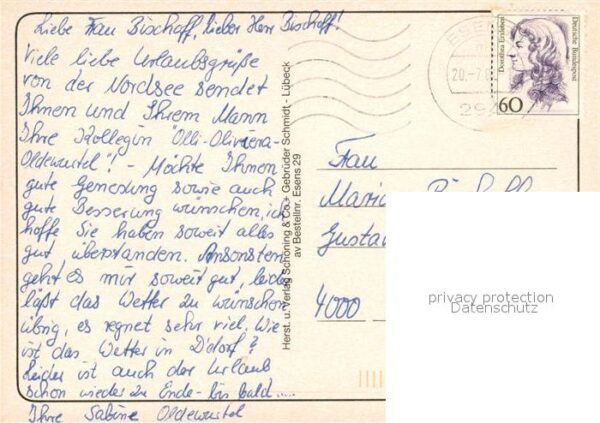 Liebe Frau Bischoff, lieber Herr Bischoff!
Viele liebe Urlaubsgrüße
von der Nordsee sendet
Ihnen und Ihrem Mann
Ihre Kollegin "Olli-Oliviera-
Oldewurtel"! - Möchte Ihnen
gute Genesung sowie auch
gute Besserung wünschen, ich
hoffe Sie haben soweit alles
gut überstanden. Ansonsten
geht es mir soweit gut, leider
läßt das Wetter zu wünschen
übrig, es regnet sehr viel. Wie
ist das Wetter in D'dorf?
Leider ist auch der Urlaub
schon wieder zu Ende - bis bald.....
Ihre Sabine Oldewurtel
Herst. u. Verlag Schöning & Co. + Gebrüder Schmidt - Lübeck
av Bestellnr. Esens 29
20.-7.
29
Dorothea Erxleben
Deutsche Bundespost
60
Frau
Gustav
4000
privacy protection
Datenschutz